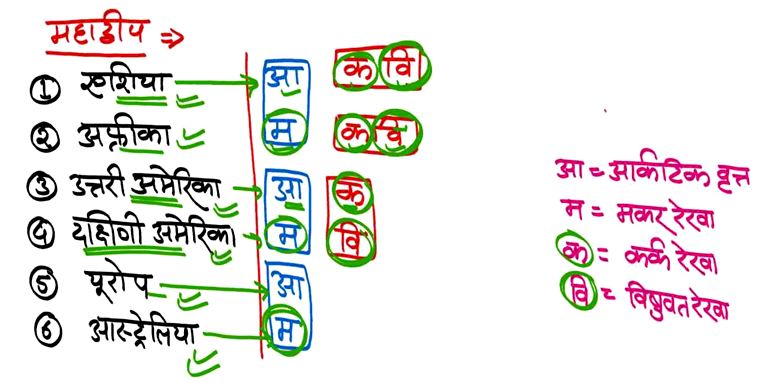 महाद्वीप ⇒
① एशिया → आ क वि
② अफ्रीका म क वि
③ उत्तरी अमेरिका → आ क
④ दक्षिणी अमेरिका → म वि
⑤ यूरोप → आ
⑥ आस्ट्रेलिया म
आ = आर्कटिक वृत्त
म = मकर रेखा
क = कर्क रेखा
वि = विषुवत रेखा